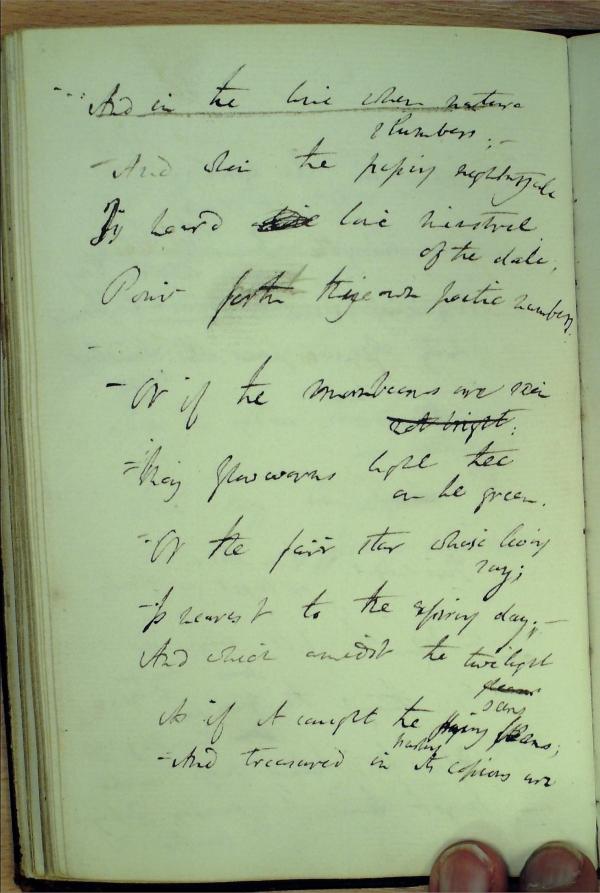 And in the time when nature
slumbers; -
- And when the passing nightingale
Is heard love minstrel
of the dale;
Pour forth thy own poetic numbers.
- Or if the moonbeams are seen
not bright;
May glow worms light thee
on the green.
- Or the fair star whose living
ray;
Is nearest to the expiring day; -
And which amidst the twilight
gleams
seems
As if it caught the flying beams;
- And treasured in its copious urn